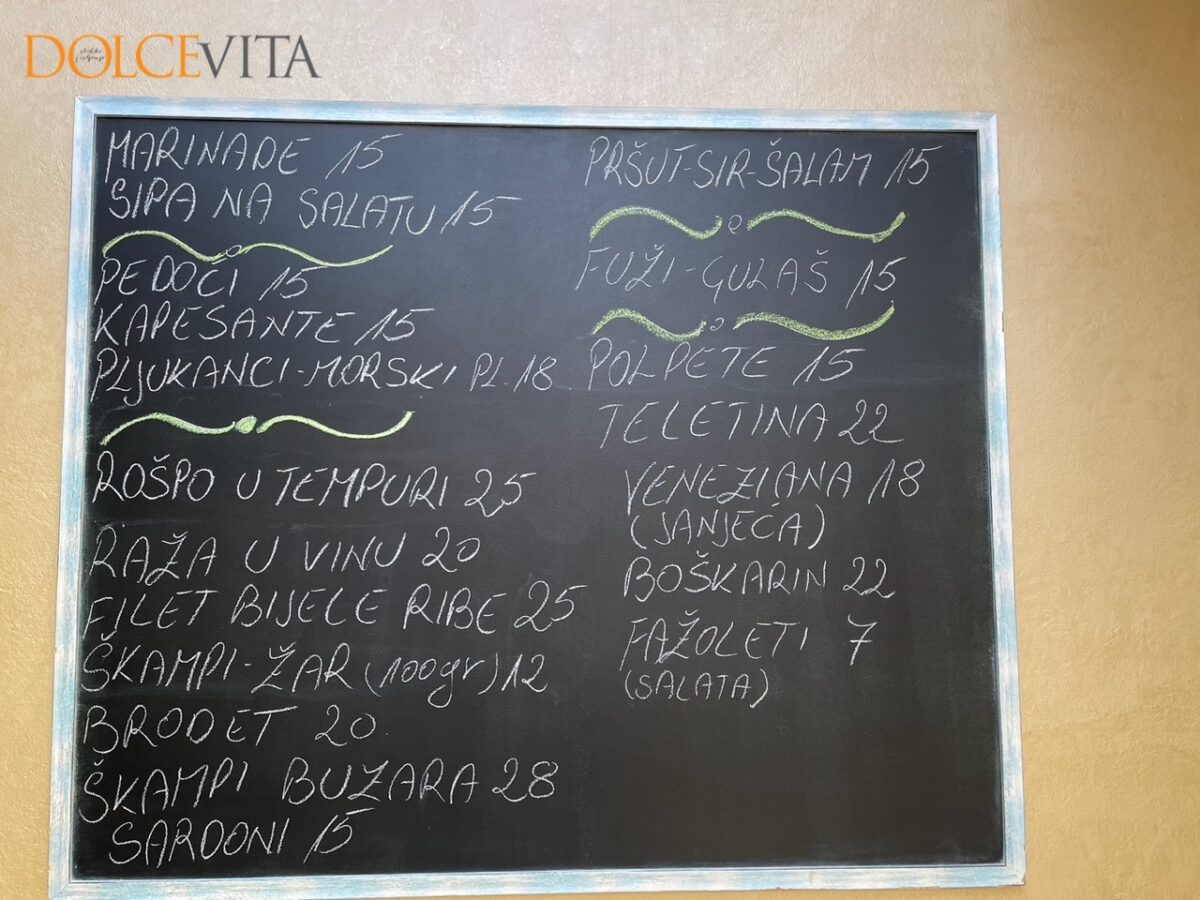 DOLCEVITA
MARINADE 15
SIPA NA SALATU 15
PEDOĆI 15
KAPESANTE 15
PLJUKANCI-MORSKI PL. 18
ROŠPO U TEMPURI 25
RAŽA U VINU 20
FILET BIJELE RIBE 25
ŠKAMPI-ŽAR (100gr) 12
BRODET 20
ŠKAMPI BUZARA 28
SARDONI 15
PRŠUT-SIR-ŠALAM 15
FUŽI-GULAŠ 15
POLPETE 15
TELETINA 22
VENEZIANA 18
(JANJEĆA)
BOŠKARIN 22
FAŽOLETI 7
(SALATA)